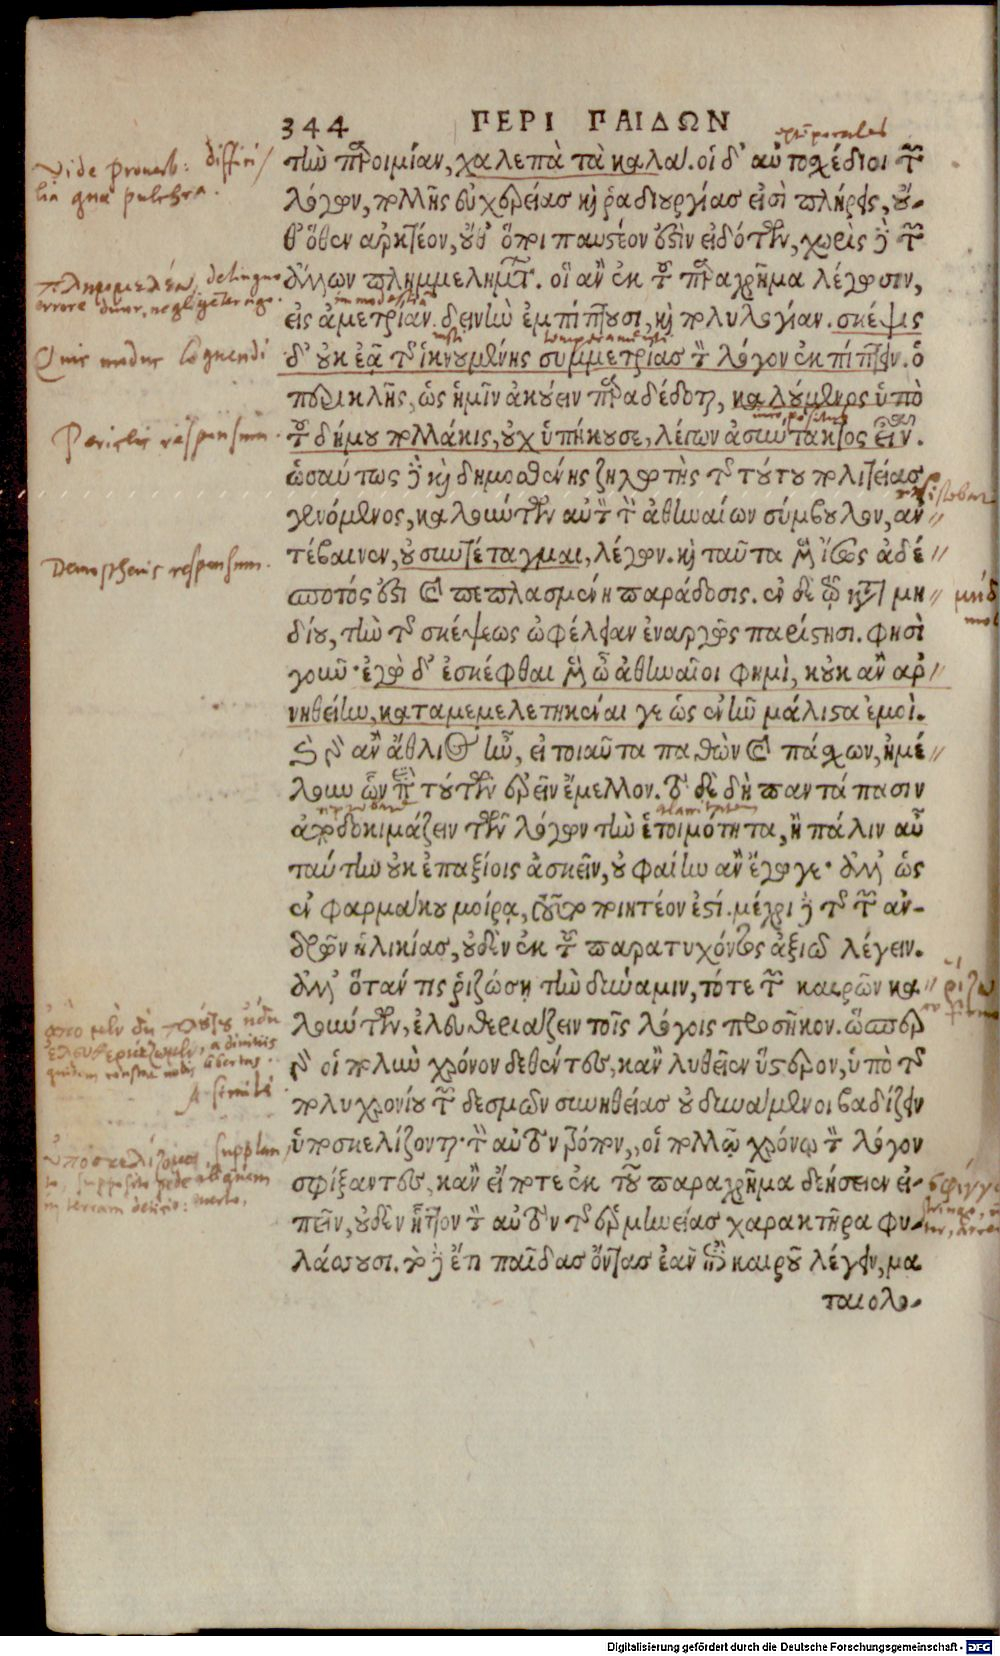 344 ΠΕΡΙ ΠΑΙΔΩΝ
τὴν παροιμίαν, χαλεπὰ τὰ καλά. οἱ δ' αὐτοσχέδιοι τῶν
λόγων, πολλῆς εὐχερείας καὶ ῥᾳδιουργίας εἰσὶ πλήρεις, οὔ-
θ' ὅθεν ἀρκτέον, οὔθ' ὅποι παυστέον ἐστὶν εἰδότων, χωρὶς δὲ τῶν
ἄλλων πλημμελημάτων. οἳ ἂν ἐκ τοῦ παραχρῆμα λέγωσιν,
εἰς ἀμετρίαν δεινὴν ἐμπίπτουσι, καὶ πολυλογίαν. σκέψις
δ' οὐκ ἐᾷ τῆς ἱκνουμένης συμμετρίας τὸν λόγον ἐκπίπτειν. ὁ
περικλῆς, ὡς ἡμῖν ἀκούειν παραδέδοται, καλούμενος ὑπὸ
τοῦ δήμου πολλάκις, οὐχ ὑπήκουσε, λέγων ἀσύντακτος εἶναι.
ὡσαύτως δὲ καὶ δημοσθένης ζηλωτὴς τῆς τούτου πολιτείας
γενόμενος, καλούντων αὐτὸν τῶν ἀθηναίων σύμβουλον, ἀν
τέβαινεν, οὐ συντέταγμαι, λέγων. καὶ ταῦτα μὲν ἴσως ἀδέ
σποτός ἐστι καὶ πεπλασμένη παράδοσις. ἐν δὲ τῷ κατὰ μη
δίου, τὴν τῆς σκέψεως ὠφέλειαν ἐναργῶς παρίστησι. φησὶ
γοῦν· ἐγὼ δ' ἐσκέφθαι μὲν ὦ ἀθηναῖοι φημὶ, κοὐκ ἂν ἀρ
νηθείην, καταμεμελετηκέναι γε ὡς ἐνῆν μάλιστα ἐμοί.
καὶ γὰρ ἂν ἄθλιος ἦν, εἰ τοιαῦτα παθὼν καὶ πάσχων, ἠμέ
λουν ὧν περὶ τούτων ἐρεῖν ἔμελλον. τὸ δὲ δὴ παντάπασιν
ἀποδοκιμάζειν τῶν λόγων τὴν ἑτοιμότητα, ἢ πάλιν αὖ
ταύτην οὐκ ἐπαξίοις ἀσκεῖν, οὐ φαίην ἂν ἔγωγε· ἀλλ' ὡς
ἐν φαρμάκου μοίρᾳ, τοῦτο ποιητέον ἐστί. μέχρι δὲ τῆς τῶν ἀν-
δρῶν ἡλικίας, οὐδὲν ἐκ τοῦ παρατυχόντος ἀξιῶ λέγειν.
ἀλλ' ὅταν τις ῥιζώσῃ τὴν δύναμιν, τότε τῶν καιρῶν κα
λούντων, ἐλευθεριάζειν τοῖς λόγοις προσῆκον. ὥσπερ
γὰρ οἱ πολὺν χρόνον δεθέντες, κἂν λυθεῖεν ὕστερον, ὑπὸ τῆς
πολυχρονίου τῶν δεσμῶν συνηθείας οὐ δυνάμενοι βαδίζειν
ὑποσκελίζονται· τὸν αὐτὸν τρόπον, οἱ πολλῷ χρόνῳ τὸν λόγον
σφίξαντες, κἂν εἴ ποτε ἐκ τοῦ παραχρῆμα δεήσειεν εἰ-
πεῖν, οὐδὲν ἧττον τὸν αὐτὸν τῆς ἑρμηνείας χαρακτῆρα φυ-
λάσσουσι. τὸ δὲ ἔτι παῖδας ὄντας ἐᾶν ἐπὶ καιροῦ λέγειν, μα
ταιολο-
Vide proverb: diffici/
lia quae pulchra.
πλημμελέω, delinquo
Quis modus loquendi
Periclis responsum.
Demosthenis responsum.
A simili